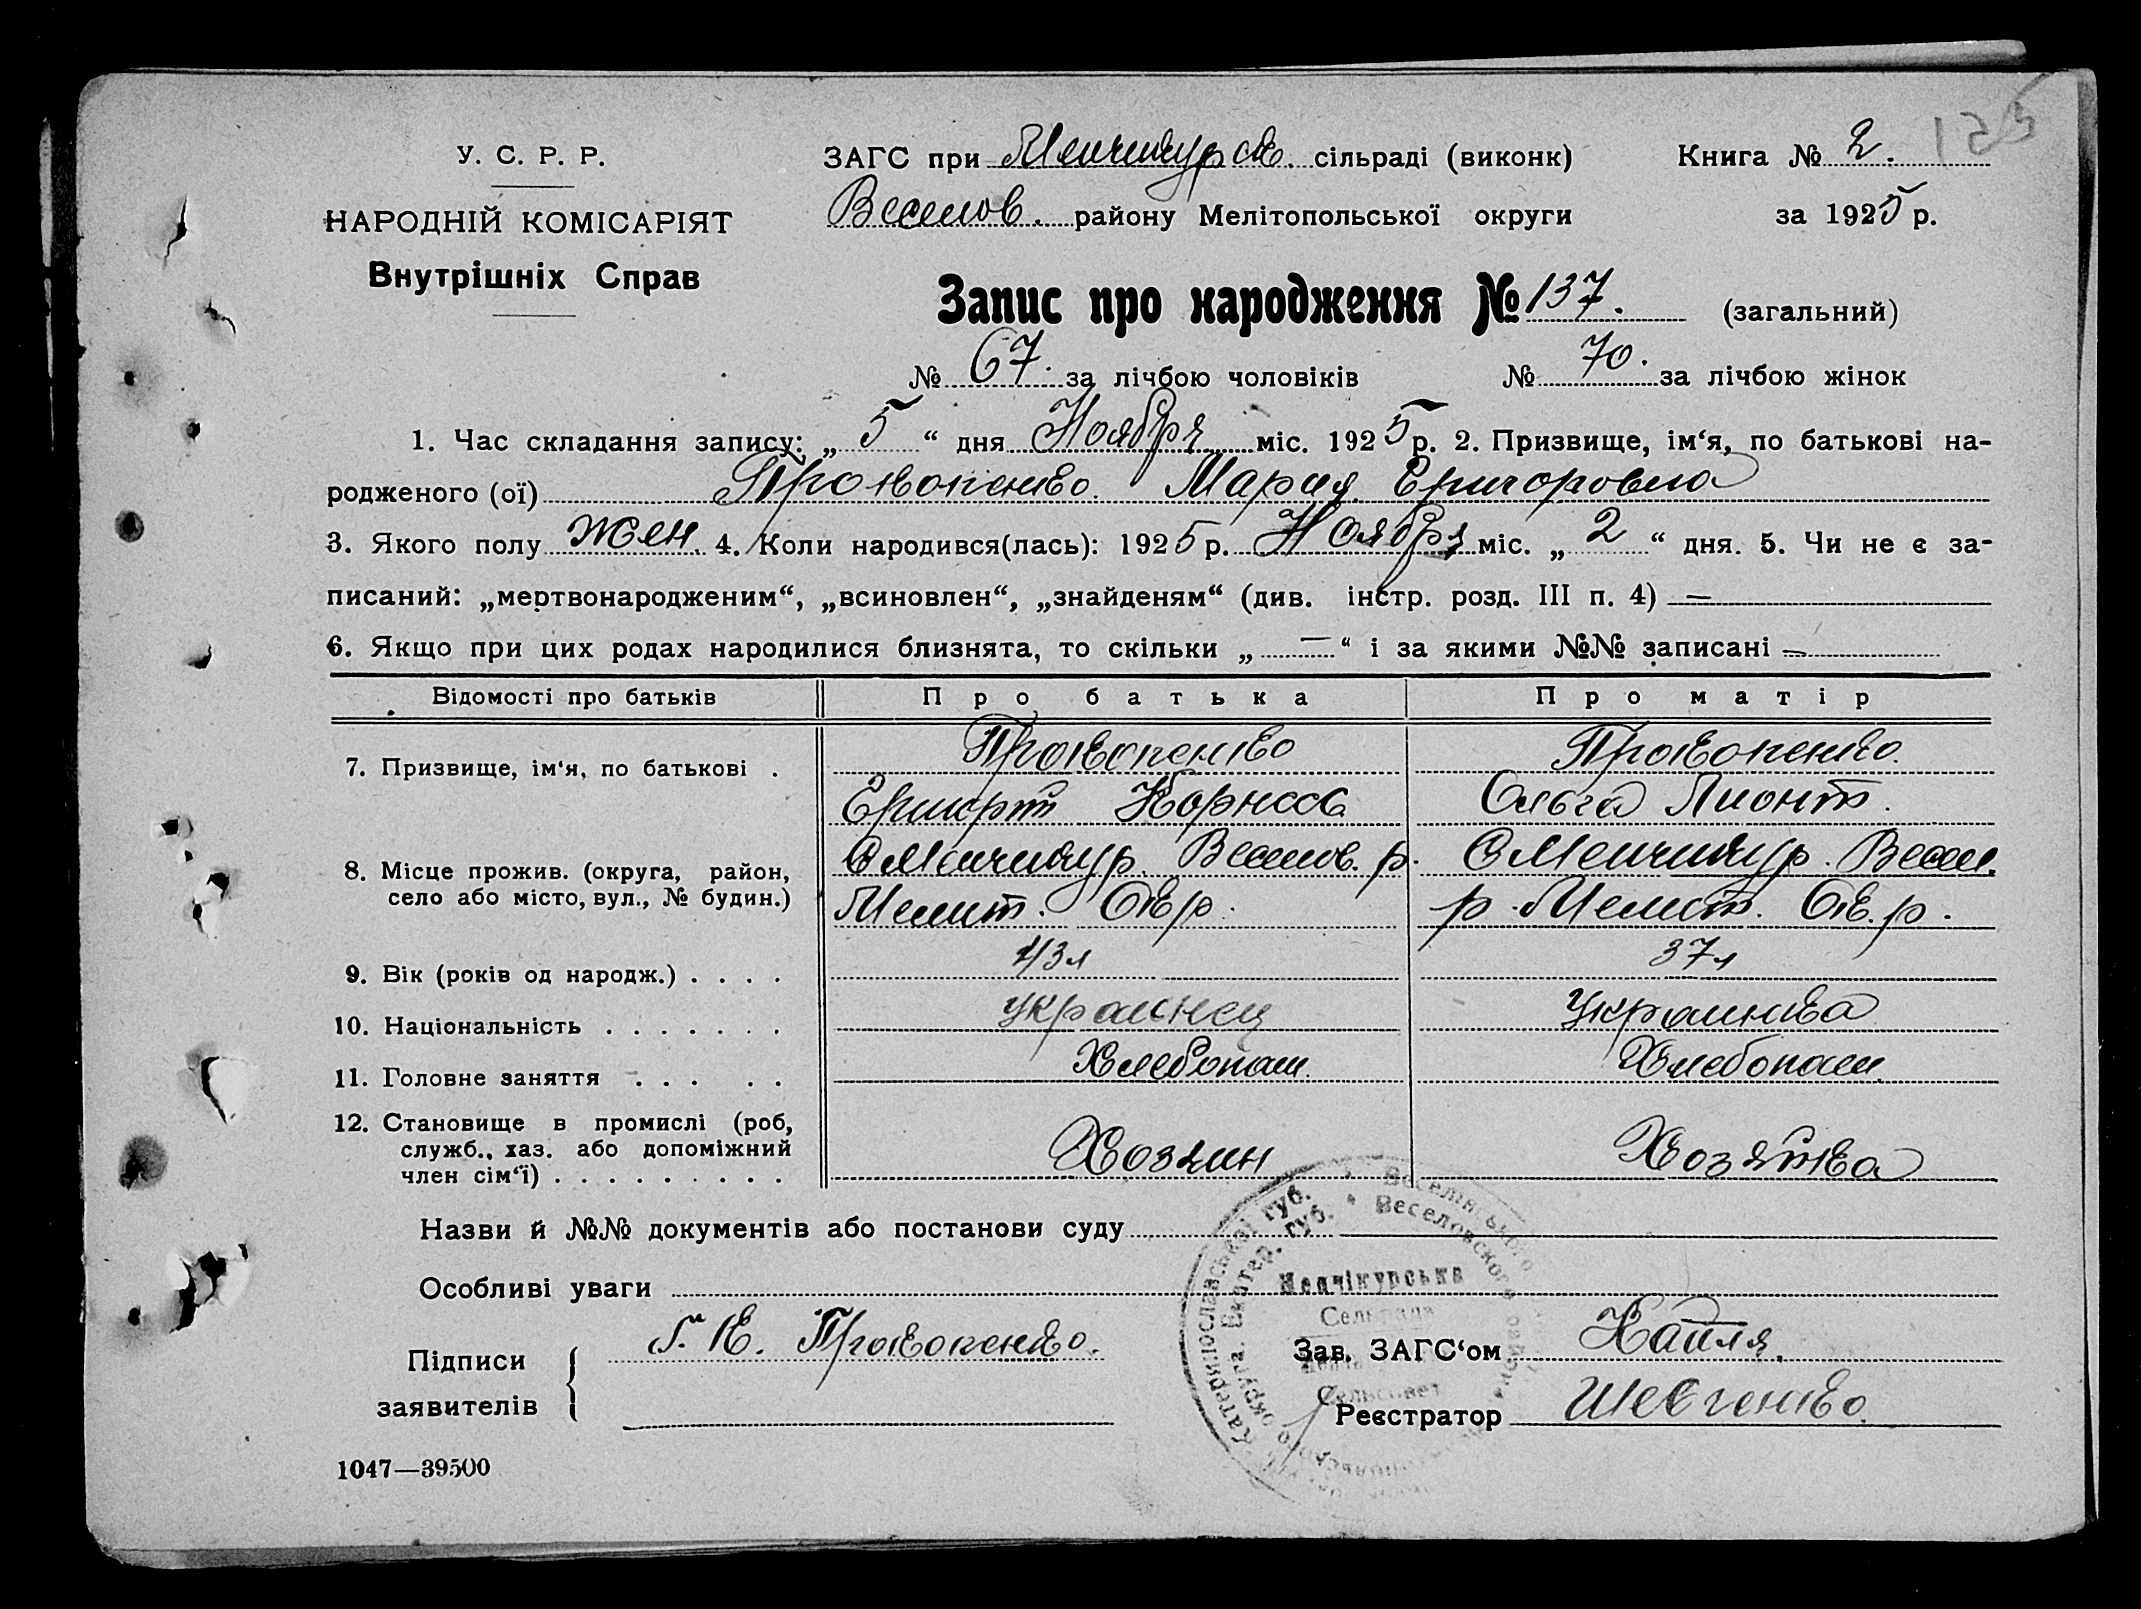 У. С. Р. Р.
НАРОДНІЙ КОМІСАРІЯТ
Внутрішніх Справ
ЗАГС при Менчикурск. сільраді (виконк)
Книга № 2.
Веселов. району Мелітопольської округи
за 1925 р.
Запис про народження № 137. (загальний)
№ 67. за лічбою чоловіків № 70. за лічбою жінок
1. Час складання запису: „ 5 “ дня Ноября міс. 1925 р. 2. Призвище, ім‘я, по батькові на-
родженого (ої) Прокопенко Мария Григоровна
3. Якого полу жен. 4. Коли народився(лась): 1925 р. Ноября міс. „ 2 “ дня. 5. Чи не є за-
писаний: „мертвонародженим“, „всиновлен“, „знайденям“ (див. інстр. розд. III п. 4) —
6. Якщо при цих родах народилися близнята, то скільки „ — “ і за якими №№ записані —
Відомості про батьків Про батька Про матір
7. Призвище, ім‘я, по батькові . Прокопенко Прокопенко.
Григорий Корнеев Ольга Лионт.
8. Місце прожив. (округа, район, С Менчикур. Веселов. р. С Менчикур. Весел.
село або місто, вул., № будин.) Мелит. Окр. р. Мелит. Ок.р.
9. Вік (років од народж.) . . . . 43 л 37 л
10. Національність . . . . . . . украинец Украинка
11. Головне заняття . . . . . Хлебопаш. Хлебопаш.
12. Становище в промислі (роб, служб., хаз. або допоміжний член сім‘ї) . . . . . . . . . Хозяин Хозяйка
Назви й №№ документів або постанови суду
Особливі уваги
Підписи заявителів Г. К. Прокопенко.
Зав. ЗАГС‘ом
Реєстратор Шевченко.
Менчікурська
Сельрада
Сельсовет
1047—39500